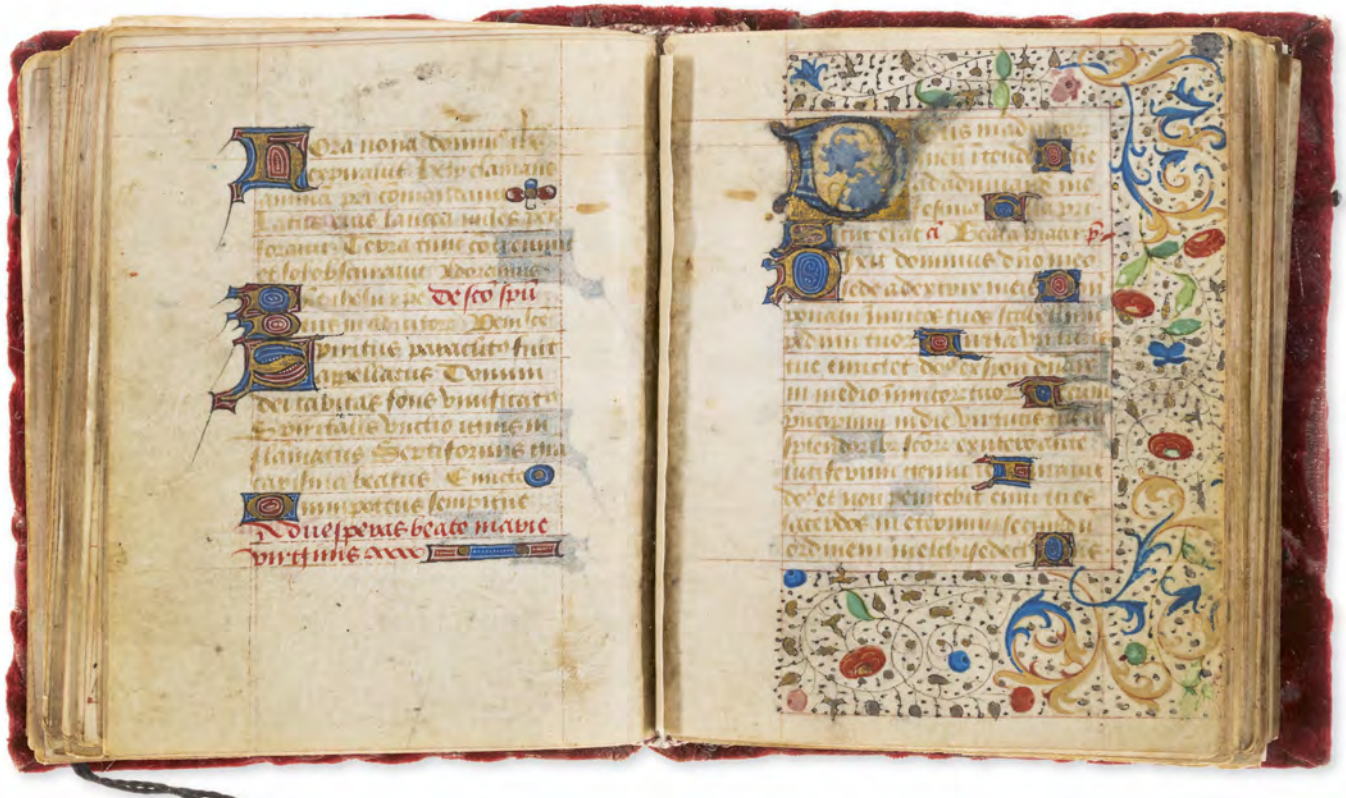 Ora nona domin' ihs
expiravit hely clamans
animam p̄ri comendavit
Latus eius lancea miles per
foravit Terra tunc cotremuit
et sol obscuravit Adoramus
de scō spū
eus in adiutor Veni sce
Spiritus paraclito fuit
appellatus Donum
dei caritas fons vivificatꝰ
Spiritalis vnctio
Septiformis
caristia beatus Emicte
mnipotens sempitne
Ad uesperas beate marie
virginis
Deus in adiutor
meū ītende
ad adiuuand me
festina pri
erat añ Beata mater p̄s
Dixit dominus dño meo
sede a dextris meis
ponam īimicos tuos scabellum
pedum tuor virga virtutis
tue emictet dñs ex syon dnare
in medio īimicorꝫ tuorꝫ ecum
principium in die virtutis tue in
splendoribꝫ scōrꝫ ex utero ante
luciferum genui te urauit
dñs et non penitebit eum tu es
sacerdos in eternum secundū
ordinem melchisedech